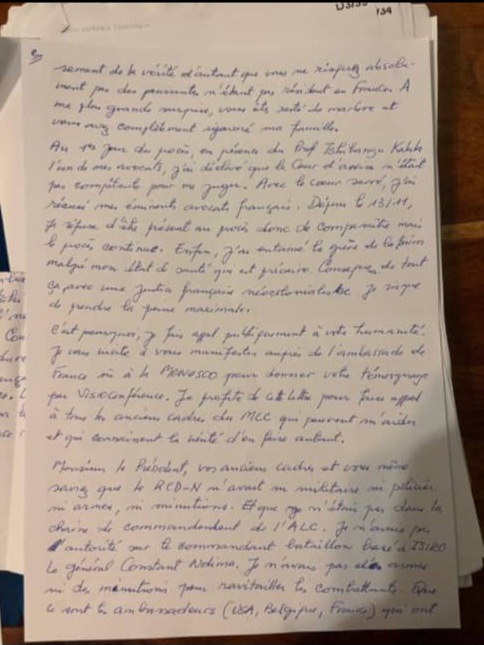 sement de la vérité d'autant que vous ne risquez absolu-
ment pas des poursuites n'étant pas résident en France. A
ma plus grande surprise, vous êts resté de marbre et
vous avez complètement ignoré ma famille.
Au 1er jour du procès, en présence du Prof
l'un de mes avocats, j'ai déclaré que la Cour d'assises n'était
pas compétente pour me juger. Avec le coeur serré, j'ai
récusé mes éminents avocats français. Depuis le 13/11,
je refuse d'être présent au procès donc de comparaître mais
le procès continue. Enfin, j'ai entamé la grève de la faim
malgré mon état de santé qui est précaire. Conséquence de tout
ça avec une justice française néocolonialiste je risque
de prendre la peine maximale.
C'est pourquoi, je fais appel publiquement à votre humanité.
Je vous invite à vous manifester auprès de l'ambassade de
France ou à la MONUSCO pour donner votre témoignage
par Visioconférence. Je profite de cette lettre pour faire appel
à tous les anciens cadres du MLC qui peuvent m'aider
et qui connaissent la vérité d'en faire autant.
Monsieur le Président, vos anciens cadres et vous même
savez que le RCD-N n'avait ni militaire ni policier,
ni armes, ni munitions. Et que je n'étais pas dans la
chaîne de commandement de l'ALC. Je n'avais pas
d'autorité sur le commandant bataillon basé à ISIRO
le général Constant Ndima. Je n'avais pas des armes
ni des minutions pour ravitailler les combattants. Que
ce sont les ambassadeurs (USA, Belgique, France) qui ont